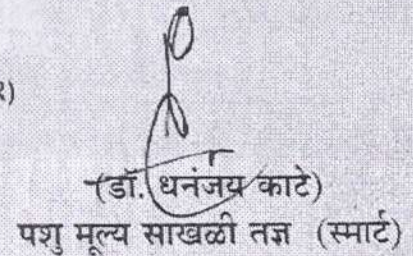 १)
(डॉ. धनंजय काटे)
पशु मूल्य साखळी तज्ञ (स्मार्ट)